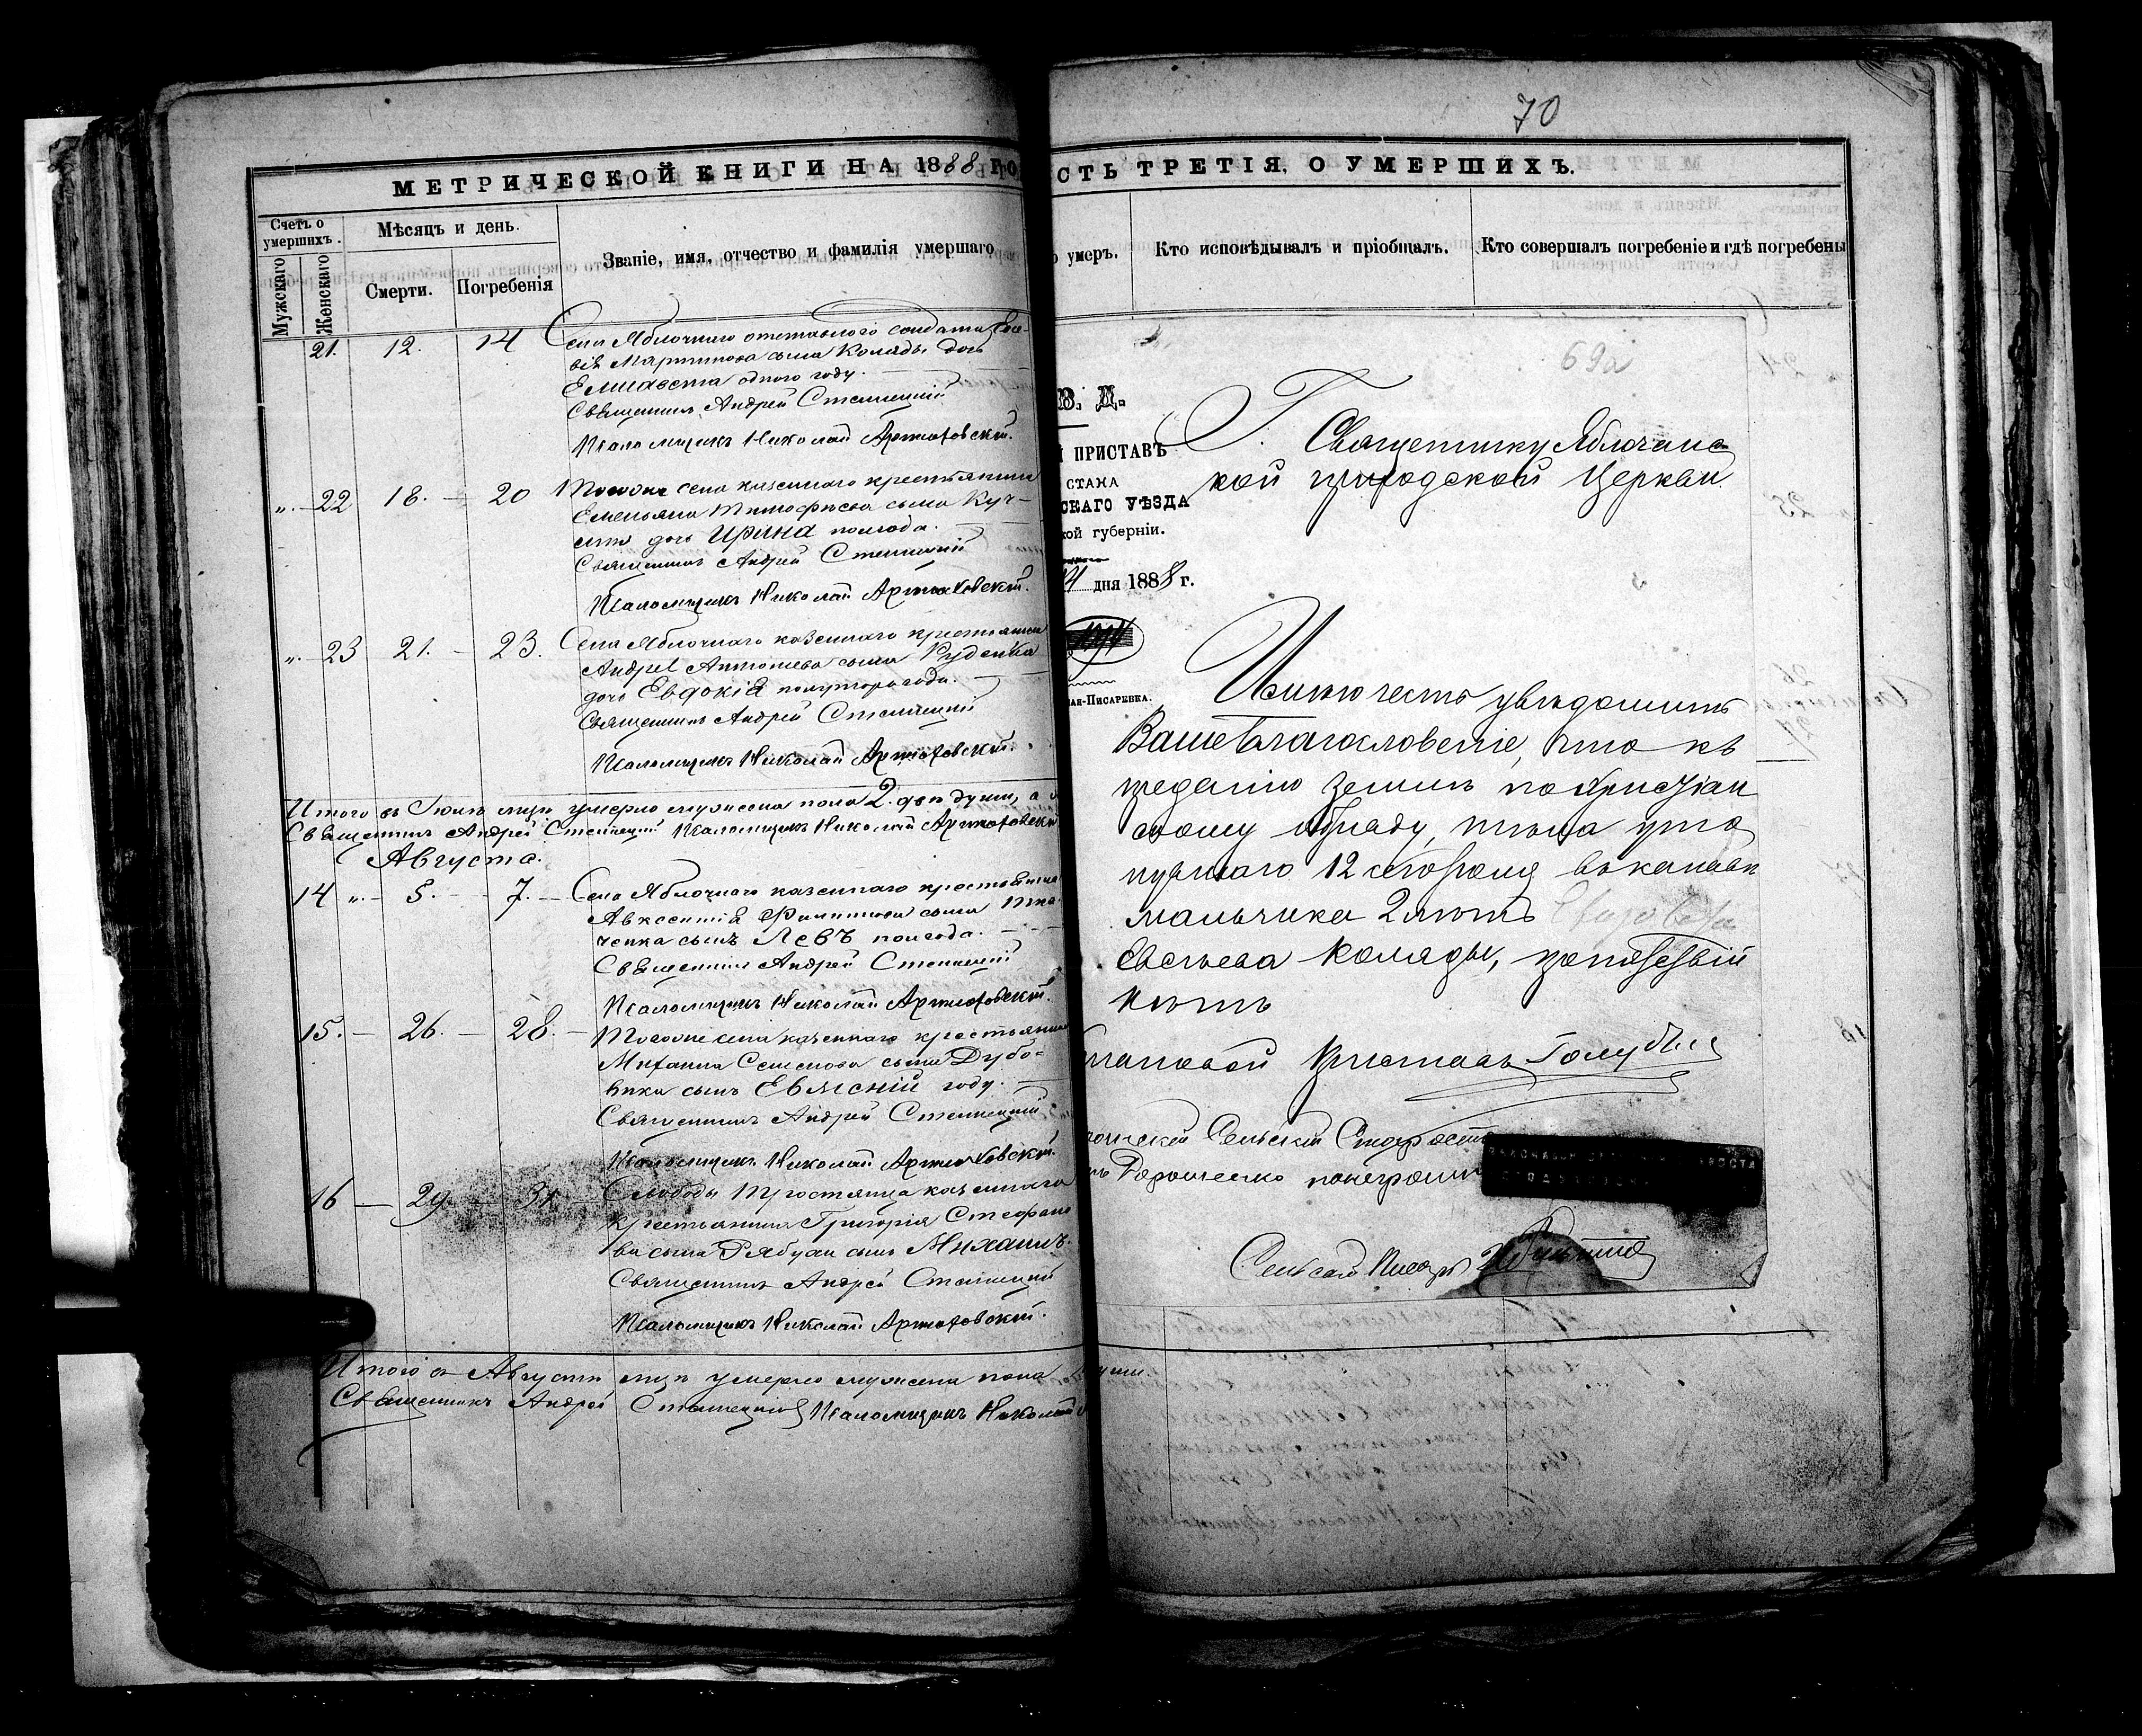 70
МЕТРИЧЕСКОЙ КНИГИ НА 1888 ГО
СТЬ ТРЕТІЯ, О УМЕРШИХЪ.
Счетъ о умершихъ.
Мужскаго
Женскаго
Мѣсяцъ и день.
Смерти.
Погребенія
Званіе, имя, отчество и фамилія умершаго
умеръ.
Кто исповѣдывалъ и пріобщалъ.
Кто совершалъ погребеніе и гдѣ погребены
21. 12. 14 Села Яблочнаго отставного солдата Евсе-
вія Мартинова сына Коляды дочь
Елисавета одного году.
Священникъ Андрей
Псаломщикъ Николай Артюховскій.
22 18. 20 Тогоже села казеннаго крестьянина
Емельяна Тимофѣева сына Куч-
дочь Ирина полгода.
Священникъ Андрей
Псаломщикъ Николай Артюховскій.
23 21. 23. Села Яблочнаго казеннаго крестьянина
Андрея Антоніева сына Руденка
дочь Евдокія полутора года.
Священникъ Андрей
Псаломщикъ Николай Артюховскій.
Итого въ Іюлѣ м-цѣ умерло мужеска пола 2. двѣ души, а
Священникъ Андрей Псаломщикъ Николай Артюховскій
Августа.
14 5. 7. Села Яблочнаго казеннаго крестьянина
Авксентія Филиппова сына Тка-
ченка сынъ Левъ полгода.
Священникъ Андрей
Псаломщикъ Николай Артюховскій.
15. 26. 28. Тогоже села казеннаго крестьянина
Михаила Семенова сына Дубо-
вика сынъ Евменій году.
Священникъ Андрей
Псаломщикъ Николай Артюховскій.
16 29. 31. Слободы Тростянца казеннаго
крестьянина Григорія Стефано
ва сына Рябухи сынъ Михаилъ.
Священникъ Андрей
Псаломщикъ Николай Артюховскій.
Итого въ Августѣ м-цѣ умерло мужеска пола души.
Священникъ Андрей Псаломщикъ Николай
69а
В. Д.
ПРИСТАВЪ
СТАНА
СКАГО УѢЗДА
кой губерніи.
14 дня 1888 г.
ая-Писаревка.
Г. Священнику Яблочанс
кой приходской Церкви
Имѣю честь увѣдомить
Ваше Благословеніе, что къ
преданію землѣ по Христіан
скому обряду, тѣла уто
нувшаго 12 сего Іюля въ канавѣ
мальчика 2 лѣтъ
Евсѣева Коляды, препятствій
нѣтъ
тановой Приставъ Голубинъ
чанскій Сельскій Староста
Сельскій Писарь